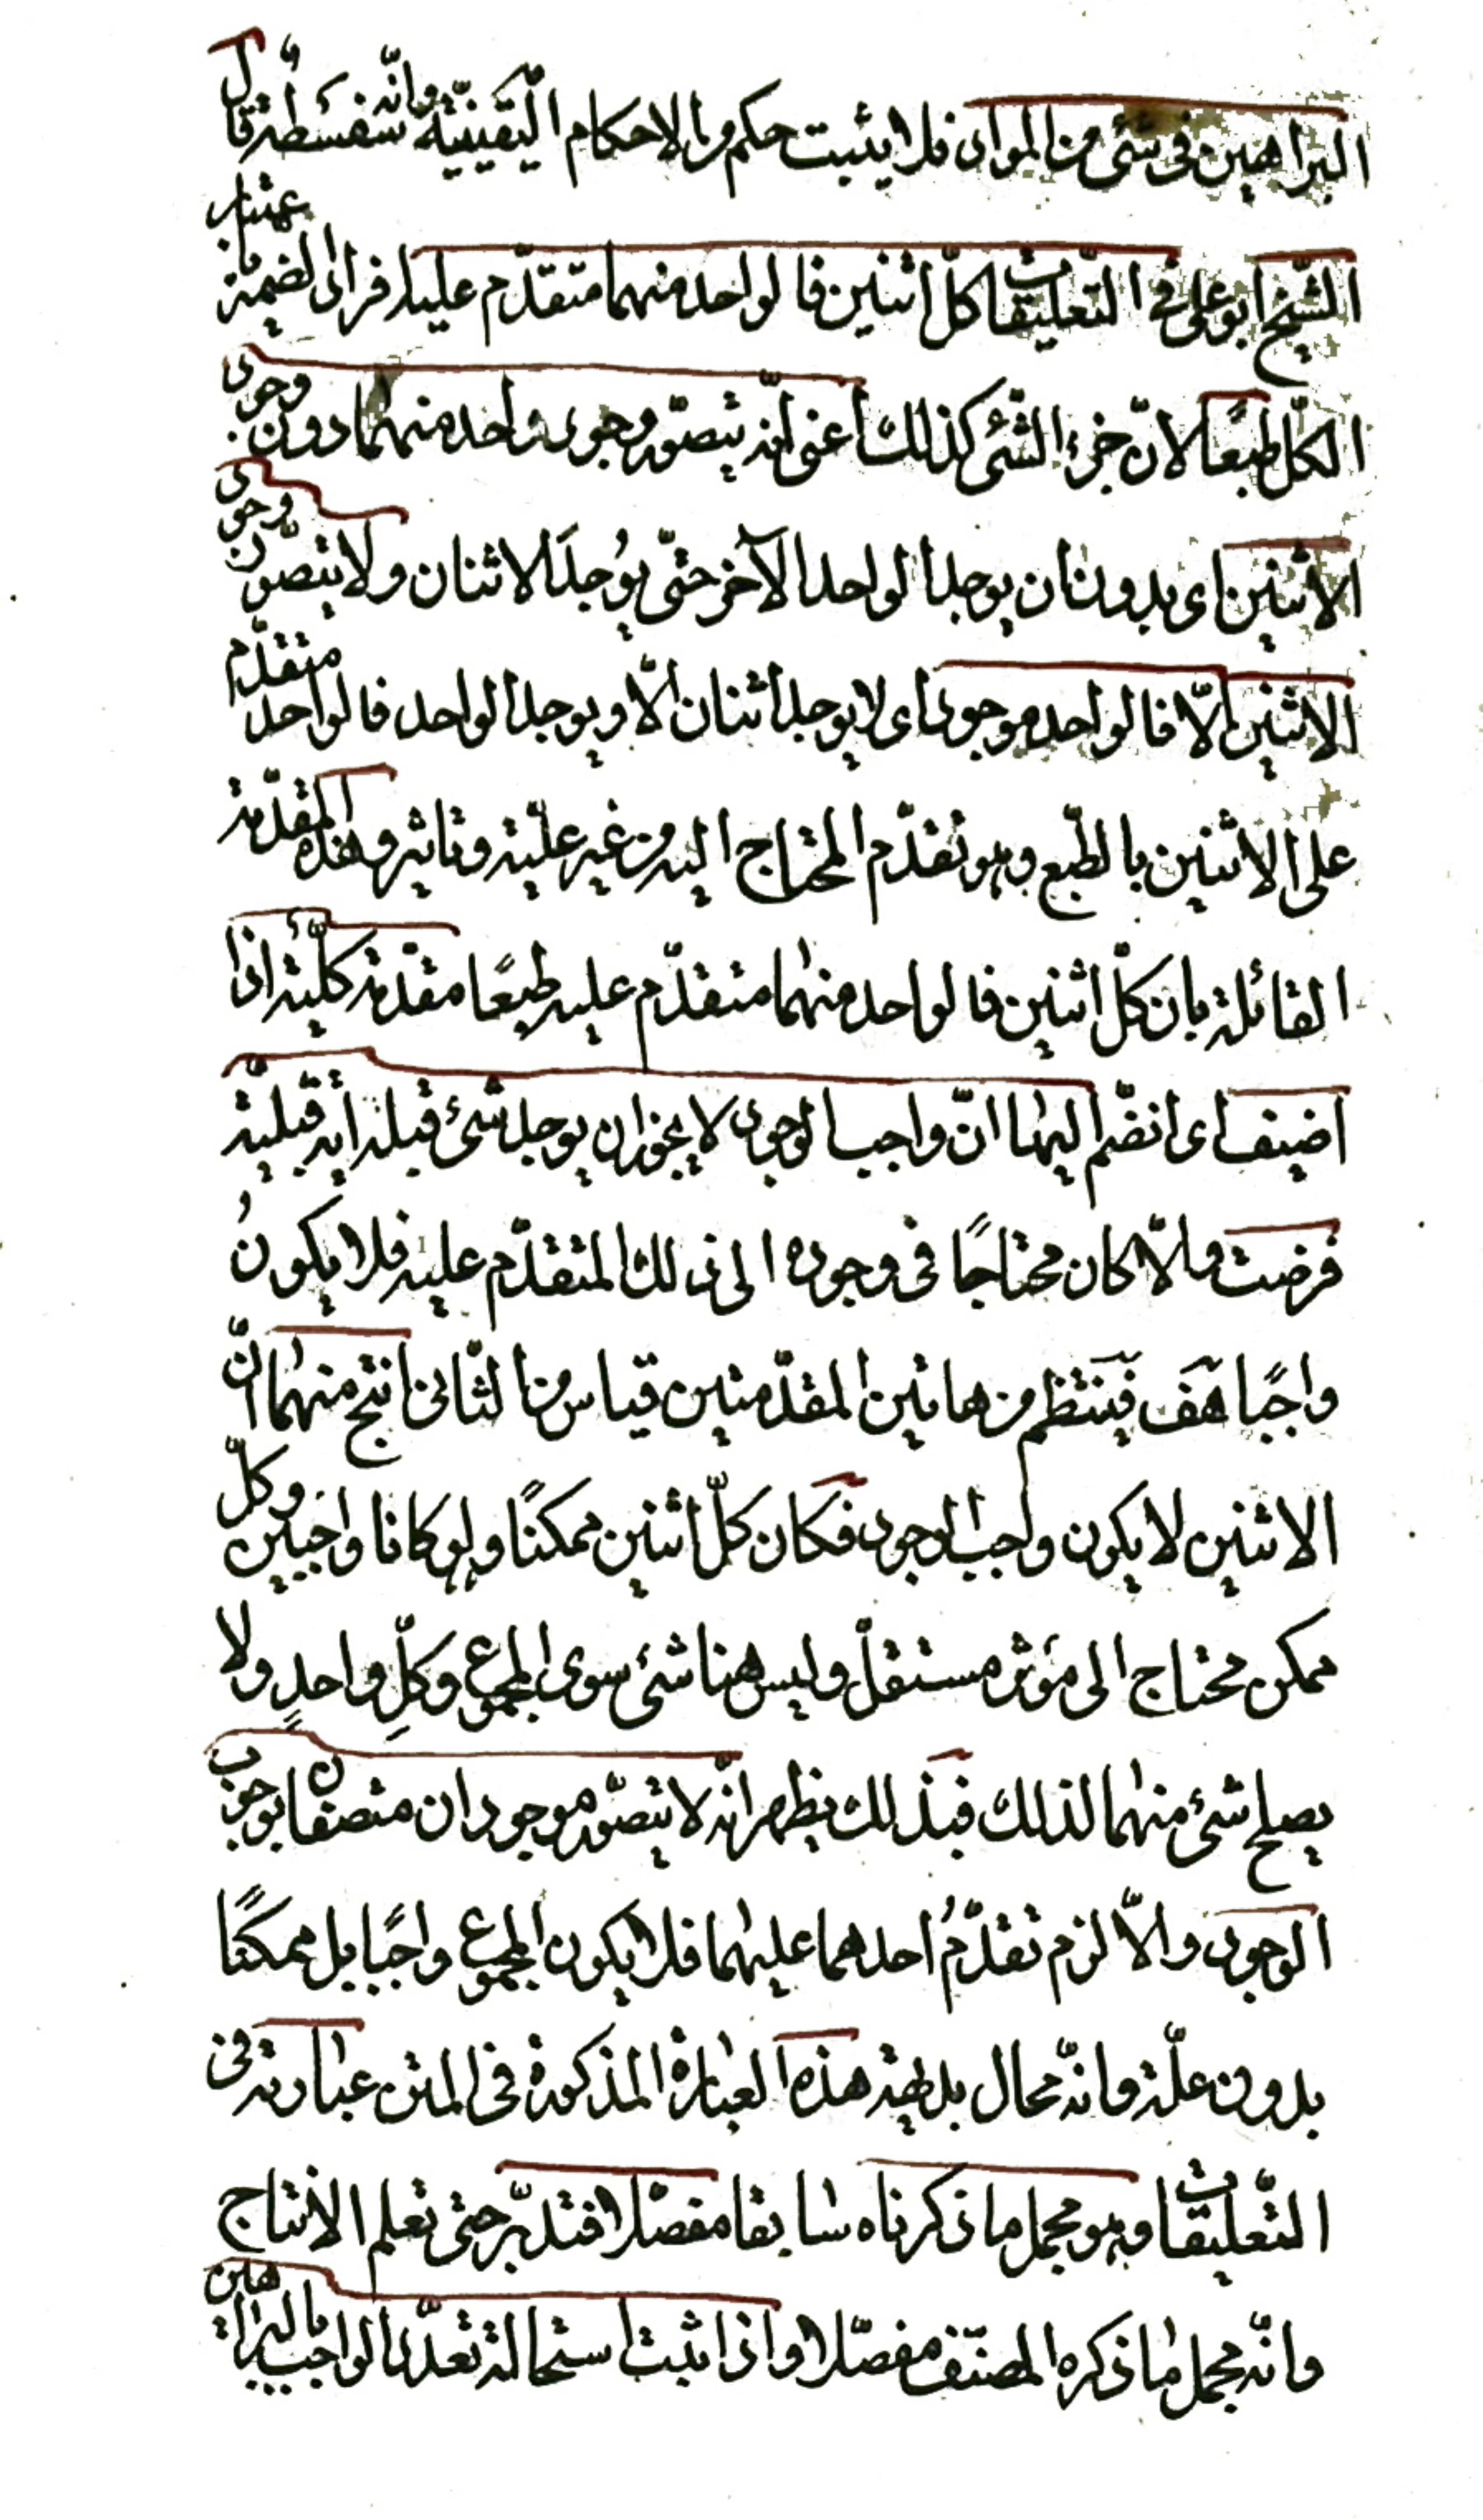 البراهين فى شئ من المواد فلا يثبت حكم من الاحكام اليقينيّة وانّه سَفسَطَة قال
الشّيخ ابو على فى التّعليقات كلّ اثنين فالواحد منهما متقدّم عليه
الكلّ طبعًا لانّ جزء الشّئ كذلك اعنى انّه يتصوّر وجود واحد منهما دون وجود
الاثنين اى بدون ان يوجد الواحد الآخر حتّى يُوجدَ الاثنان ولا يتصوّر وجود
الاثنين الّا فالواحد موجود اى لا يوجد اثنان الّا ويوجد الواحد فالواحد متقدّم
على الاثنين بالطّبع وهو تقدّم المحتاج اليه من غير علّية وتاثير وهذه المقدّمة
القائلة بان كلّ اثنين فالواحد منهما متقدّم عليه طبعًا مقدّمة كلّيّة اذا
اضيف اى انضمّ اليها انّ واجب الوجود لا يجوز ان يوجد شئ قبله اية قبليّة
فرضت والّا كان محتاجًا فى وجوده الى ذلك المتقدّم عليه فلا يكونُ
واجبًا هَف فينتظم من هاتين المقدّمتين قياس من الثّانى انتج منهما انّ
الاثنين لا يكون واجب الوجود فكان كلّ اثنين ممكنًا ولو كانا واجبين وكلّ
ممكن محتاج الى مؤثر مستقلّ وليس هنا شئ سوى المجموع وكلِّ واحدٍ ولا
يصلح شئ منهما لذلك فبذلك يظهر انّه لا يتصوّر موجودان متصفان بوجوب
الوجود والّا لزم تقدّمُ احدهما عليهما فلا يكون المجموع واجبًا بل ممكنًا
بدون علّة وانّه محال بديهة هذه العبارة المذكورة فى المتن عبارته فى
التّعليقات وهو مجمل ما ذكرناه سابقا مفصّلا فتدبّر حتى تعلم الانتاج
وانّه مجمل ما ذكره المصنّف مفصّلا واذا ثبت استحالة تعدّد الواجب بالبراهين